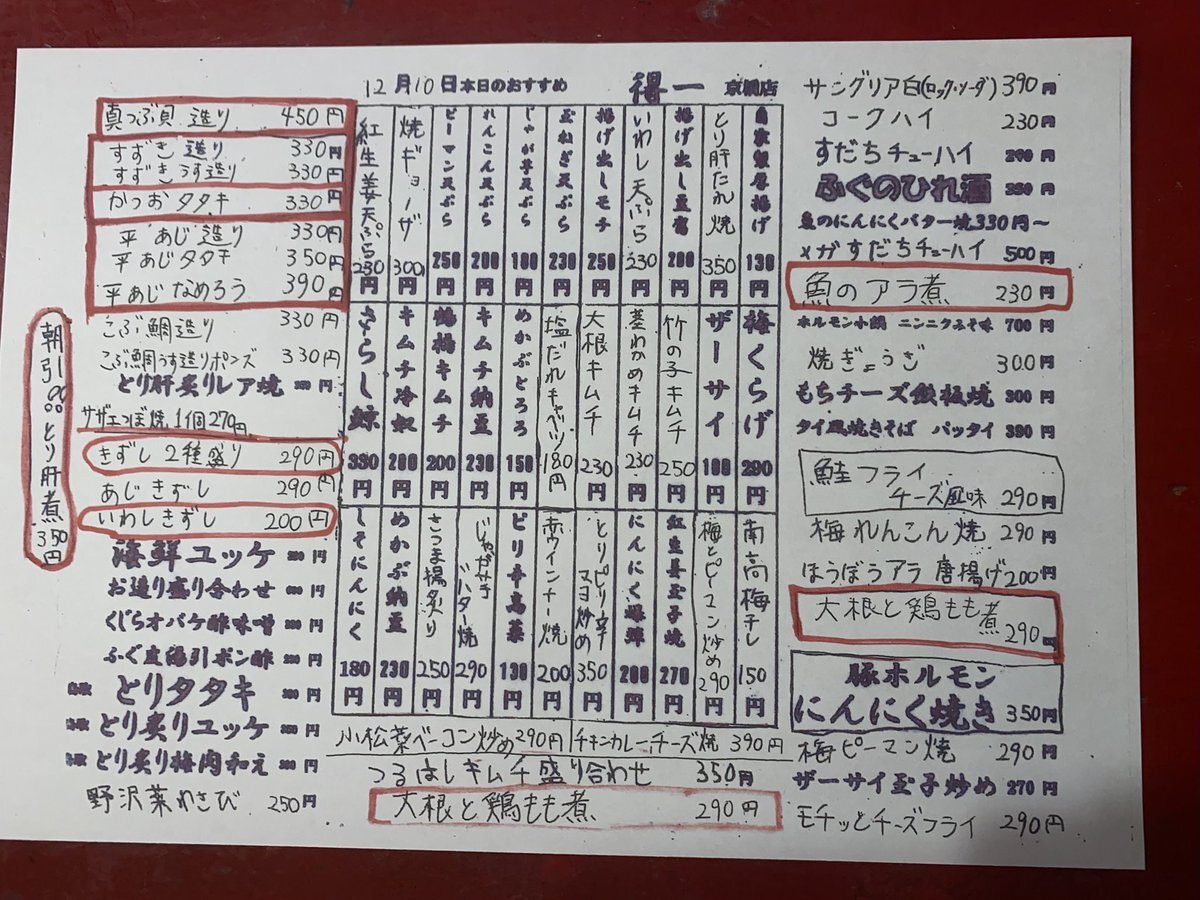 12月10日本日のおすすめ 得一 京橋店
真つぶ貝 造り 450円
すずき造り 330円
すずきうす造り 330円
かつおタタキ 330円
平あじ造り 330円
平あじタタキ 350円
平あじなめろう 390円
こぶ鯛造り 330円
こぶ鯛うす造りポンズ 330円
とり肝炙りレア焼 円
サザエつぼ焼 1個270円
きずし2種盛り 290円
あじきずし 290円
いわしきずし 200円
海鮮ユッケ 円
お造り盛り合わせ 円
くじらオバケ酢味噌 円
ふぐ皮湯引ポン酢 円
とりタタキ 円
とり炙りユッケ 円
とり炙り梅肉和え 円
野沢菜わさび 250円
朝引き とり肝煮 350円
自家製厚揚げ 130円
とり肝たれ焼 350円
揚げ出し豆腐 200円
いわし天ぷら 230円
揚げ出しモチ 250円
玉ねぎ天ぷら 230円
じゃが芋天ぷら 180円
れんこん天ぷら 200円
ピーマン天ぷら 250円
焼ギョーザ 300円
紅生姜天ぷら 230円
梅くらげ 290円
ザーサイ 100円
竹の子キムチ 250円
茎わかめキムチ 230円
大根キムチ 230円
塩だれキャベツ 180円
めかぶとろろ 150円
キムチ納豆 230円
鶴橋キムチ 200円
キムチ冷奴 200円
さらし鯨 330円
南高梅干し 150円
梅とピーマン炒め 290円
紅生姜玉子焼 270円
にんにく爆弾 200円
とりピリ辛マヨ炒め 350円
赤ウインナー焼 200円
ピリ辛高菜 130円
じゃがサキバター焼 290円
さつま揚炙り 250円
めかぶ納豆 230円
しそにんにく 180円
小松菜ベーコン炒め390円
チキンカレーチーズ焼 390円
つるはしキムチ盛り合わせ 350円
大根と鶏もも煮 290円
サングリア白(ロック・ソーダ) 390円
コークハイ 230円
すだちチューハイ 290円
ふぐのひれ酒 350円
魚のにんにくバター焼330円～
メガすだちチューハイ 500円
魚のアラ煮 230円
ホルモン小鍋 ニンニクみそ味 700円
焼ぎょうざ 300円
もちチーズ鉄板焼 300円
タイ風焼きそば パッタイ 390円
鮭フライ
チーズ風味 290円
梅れんこん焼 290円
ほうぼうアラ唐揚げ200円
大根と鶏もも煮 290円
豚ホルモン
にんにく焼き 350円
梅ピーマン焼 290円
ザーサイ玉子炒め 270円
モチッとチーズフライ 290円